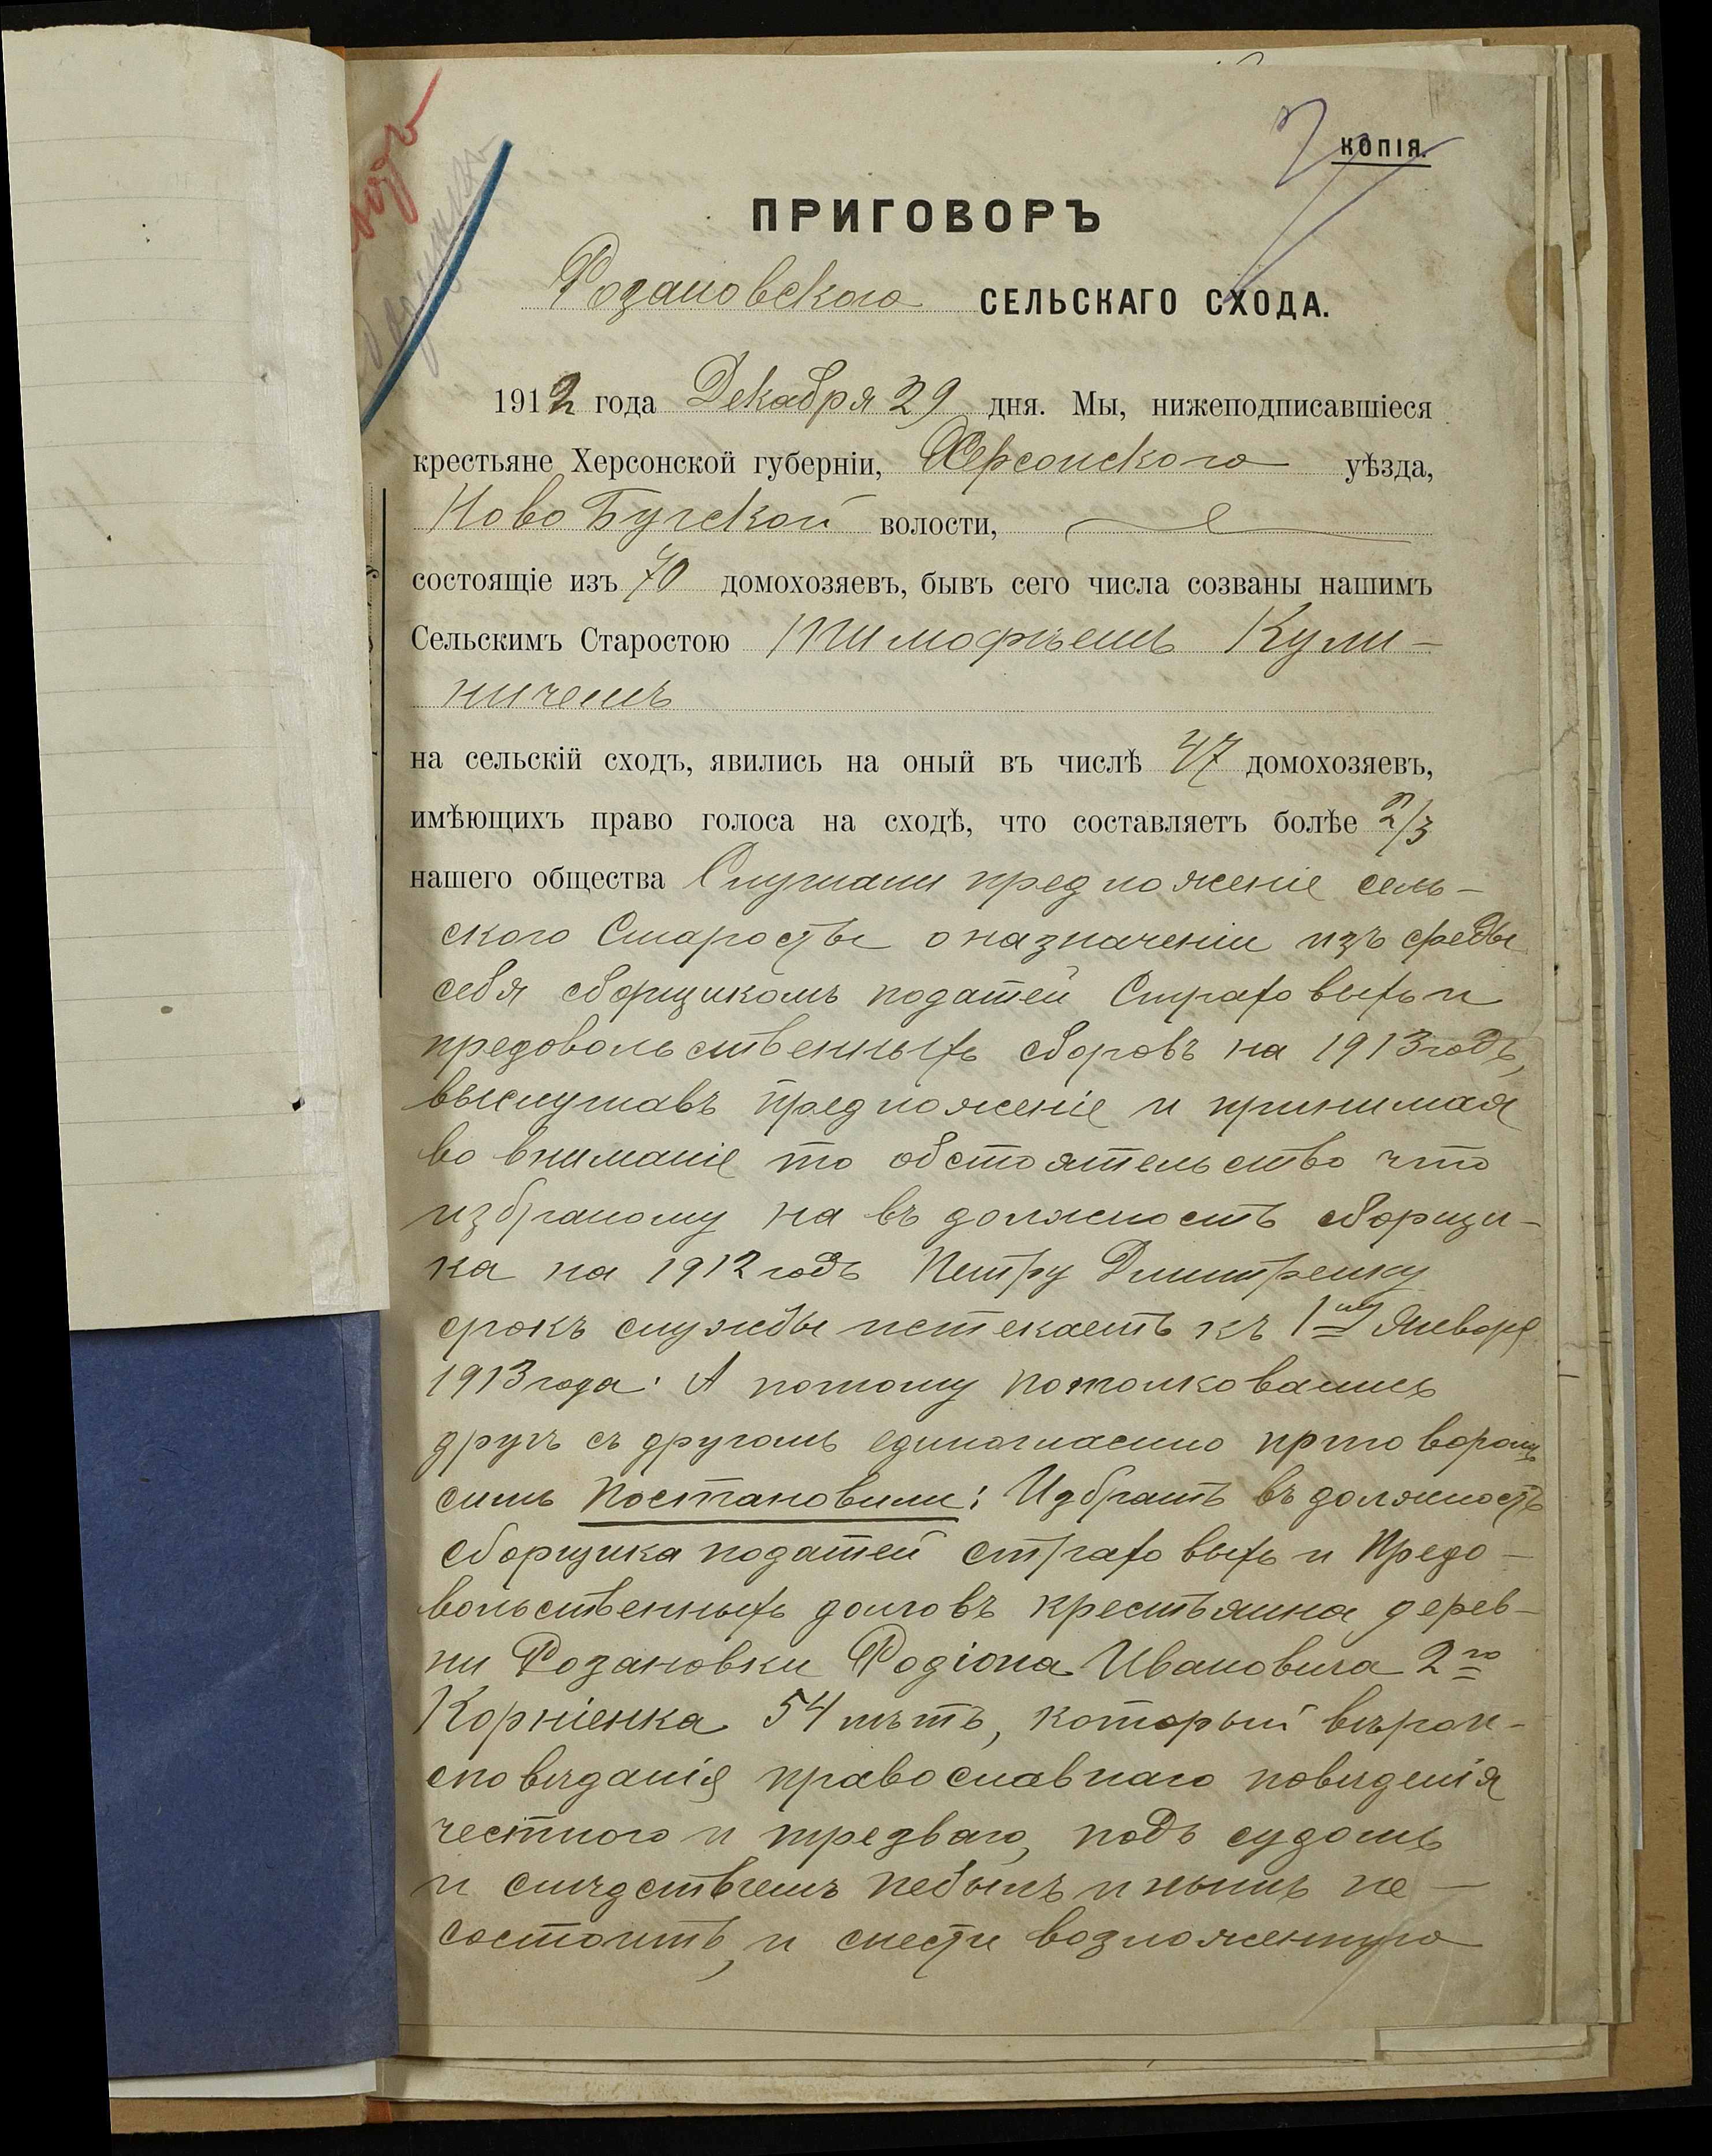 КОПІЯ.
ПРИГОВОРЪ
Розановского СЕЛЬСКАГО СХОДА.
1912 года Декабря 29 дня. Мы, нижеподписавшіеся
крестьяне Херсонской губерніи, Херсонского уѣзда,
Ново Бугской волости,
состоящіе изъ 70 домохозяевъ, бывъ сего числа созваны нашимъ
Сельскимъ Старостою Тимофѣемъ Кули-
ничемъ
на сельскій сходъ, явились на оный въ числѣ 47 домохозяевъ,
имѣющихъ право голоса на сходѣ, что составляетъ болѣе 2/3
нашего общества Слушали предложеніе сель-
ского Старосты о назначеніи изъ среды
себя сборщикомъ податей Страховыхъ и
предовольственныхъ сборовъ на 1913 годъ,
выслушавъ предложеніе и принимая
во вниманіе то обстоятельство что
избраному на въ должность сборщи-
ка на 1912 годъ Петру Дмитренку
срокъ службы истекаетъ къ 1му Января
1913 года. А потому потолковавшись
другъ съ другомъ единогласно приговоромъ
симъ постановили: Избрать въ должность
сборщика податей страховыхъ и Предо-
вольственныхъ долговъ крестьянина дерев-
ни Розановки Родіона Ивановича 2го
Корніенка 54 лѣтъ, который вѣрои-
сповѣданія православнаго повѣденія
честного и трезваго, подъ судомъ
и слѣдствіемъ небылъ и нынѣ не
состоитъ, и снести возложенную